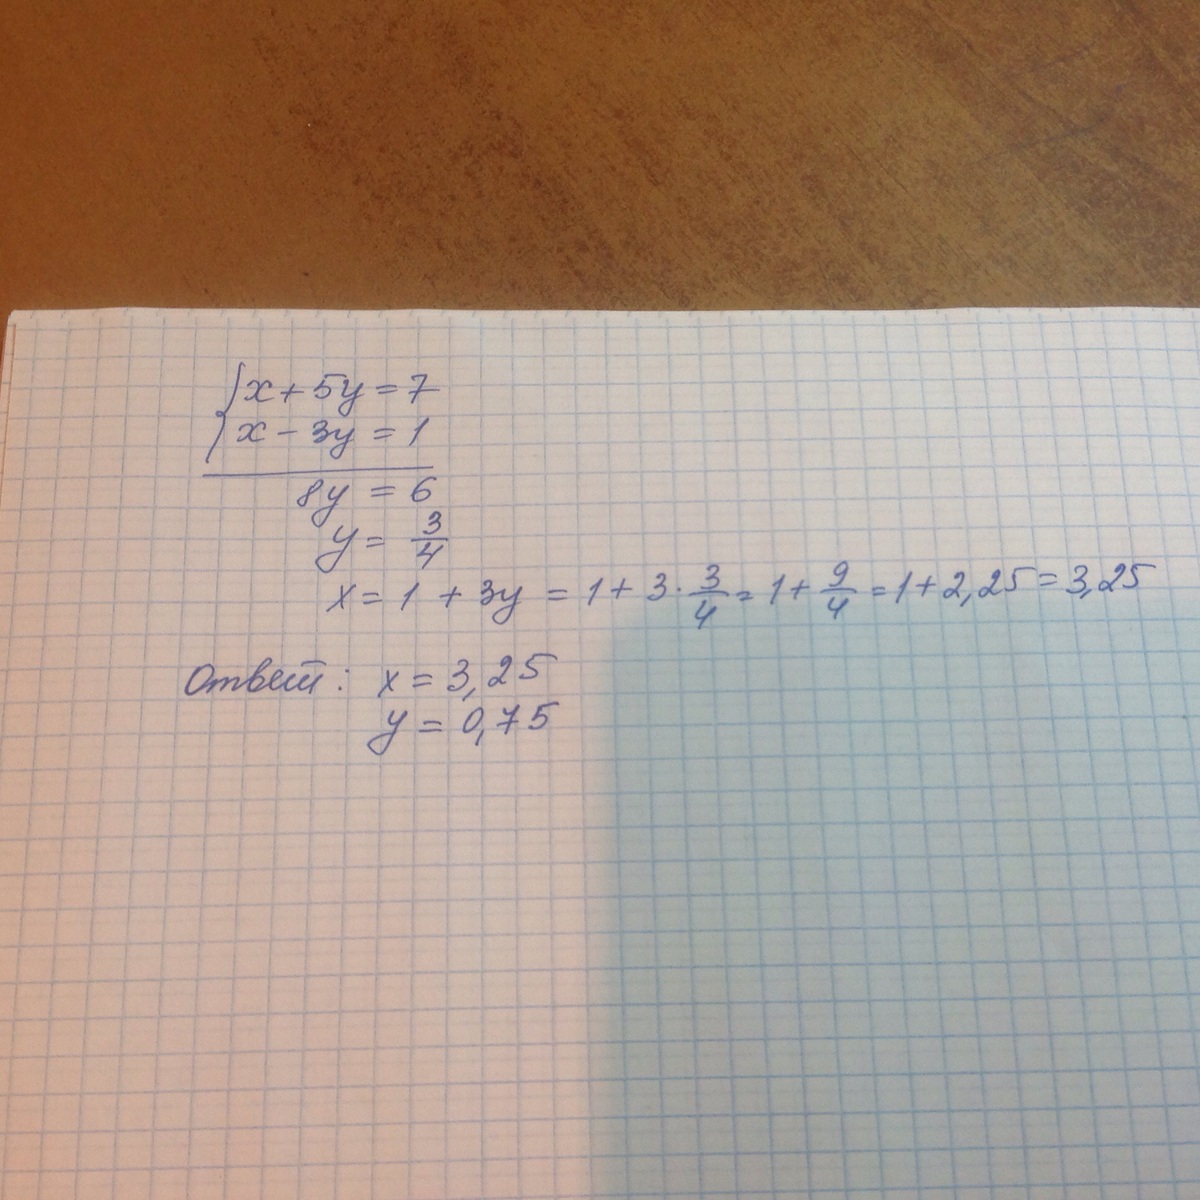 {x + 5y = 7
x - 3y = 1
8y = 6
y = 3/4
x = 1 + 3y = 1 + 3 · 3/4 = 1 + 9/4 = 1 + 2,25 = 3,25
Ответ: x = 3,25
y = 0,75